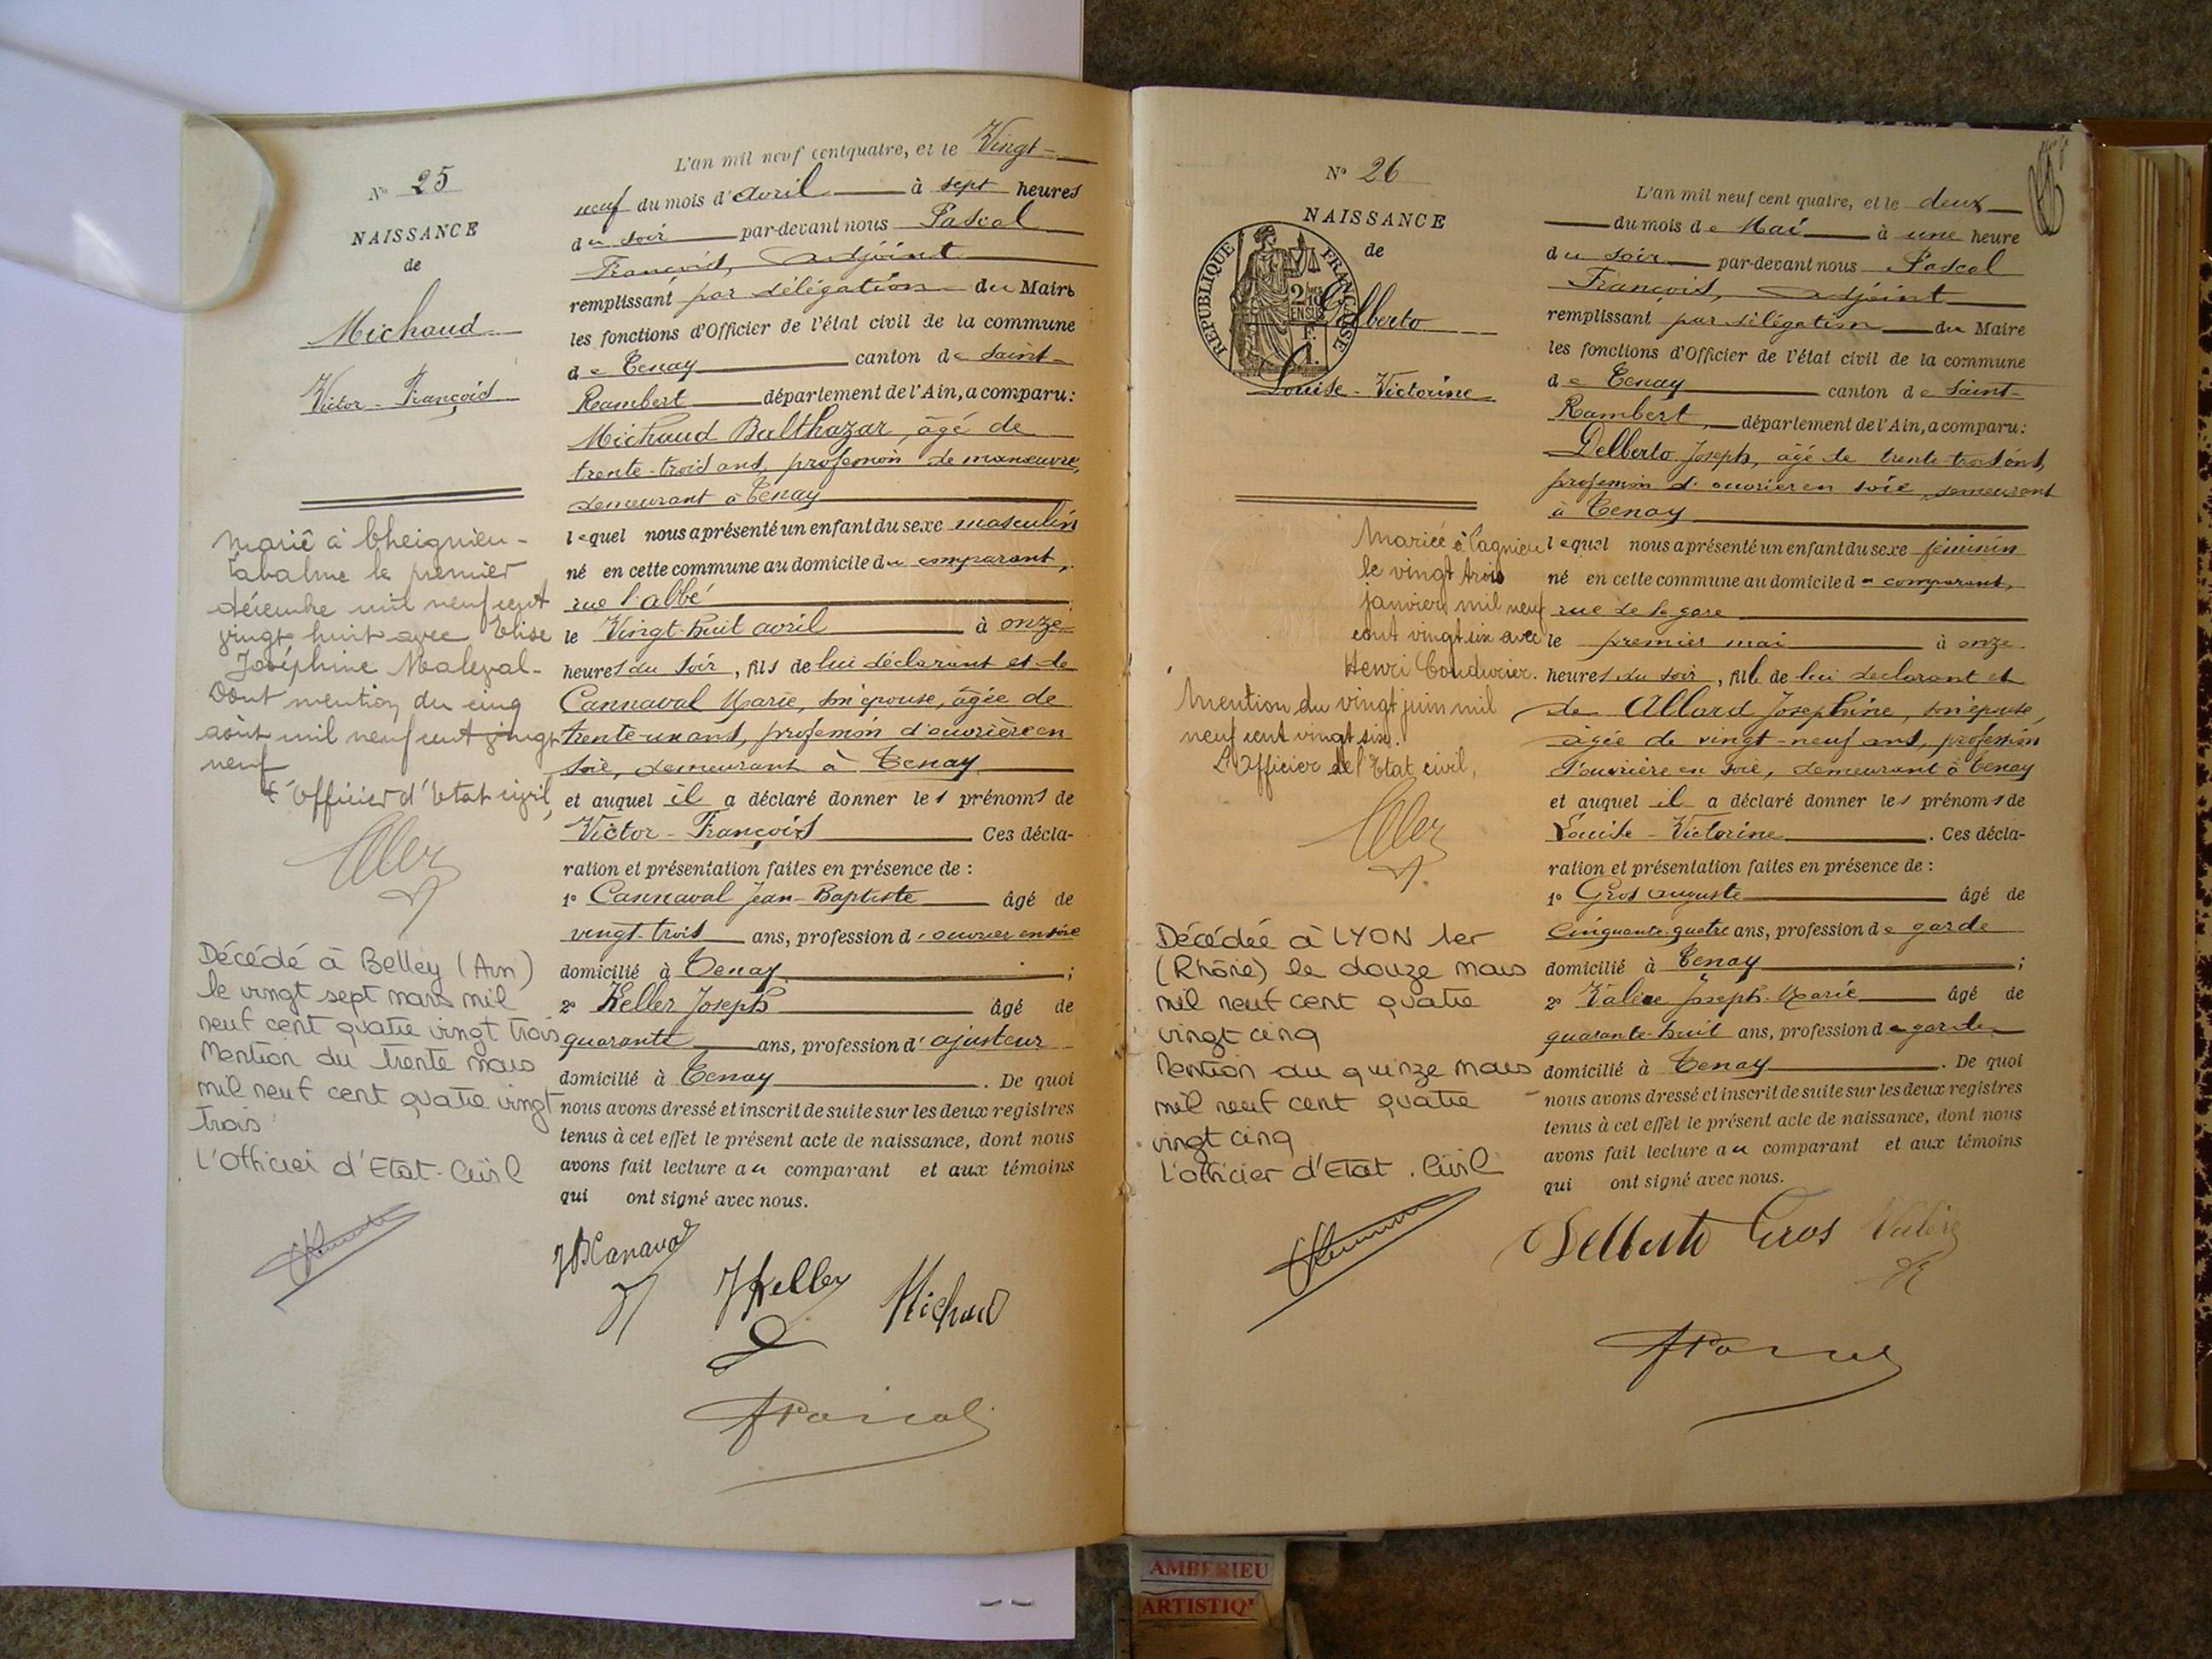 N° 25
NAISSANCE
de
Michaud
Victor - François
Marié à Cheignieu-
Labalme le premier
décembre mil neuf cent
vingt huit avec Elise
Joséphine Maleval-
Dont mention du cinq
août mil neuf cent vingt
neuf
L'Officier d'Etat civil,
Décédé à Belley (Ain)
le vingt sept mars mil
neuf cent quatre vingt trois
Mention du trente mars
mil neuf cent quatre vingt
trois
L'Officier d'Etat-Civil
L'an mil neuf cent quatre, et le Vingt-
neuf du mois d'avril à sept heures
du soir par-devant nous Pascal
François, adjoint
remplissant par délégation du Maire
les fonctions d'Officier de l'état civil de la commune
de Tenay canton de Saint-
Rambert département de l'Ain, a comparu:
Michaud Balthazar, âgé de
trente-trois ans, profession de manœuvre,
demeurant à Tenay
lequel nous a présenté un enfant du sexe masculin
né en cette commune au domicile du comparant,
rue l'abbé
le Vingt-huit avril à onze
heures du soir, fils de lui déclarant et de
Cannaval Marie, son épouse, âgée de
trente-un ans, profession d'ouvrière en
soie, demeurant à Tenay
et auquel il a déclaré donner les prénoms de
Victor - François Ces décla-
ration et présentation faites en présence de :
1° Cannaval Jean-Baptiste âgé de
vingt-trois ans, profession d'ouvrier en soie
domicilié à Tenay ;
2° Keller Joseph âgé de
quarante ans, profession d'ajusteur
domicilié à Tenay . De quoi
nous avons dressé et inscrit de suite sur les deux registres
tenus à cet effet le présent acte de naissance, dont nous
avons fait lecture au comparant et aux témoins
qui ont signé avec nous.
JBCanaval
JKeller
Michaud
FPascal
N° 26
NAISSANCE
de
REPUBLIQUE FRANÇAISE
2/10 EN SUS
F.
1.
Delberto
Louise - Victorine
Mariée à Lagnieu
le vingt trois
janvier mil neuf
cent vingt six avec
Henri Coudurier.
Mention du vingt juin mil
neuf cent vingt six.
L'Officier de l'Etat civil,
Décédée à LYON 1er
(Rhône) le douze mars
mil neuf cent quatre
vingt cinq
Mention du quinze mars
mil neuf cent quatre
vingt cinq
L'officier d'Etat. Civil
L'an mil neuf cent quatre, et le deux
du mois de Mai à une heure
du soir par-devant nous Pascal
François, adjoint
remplissant par délégation du Maire
les fonctions d'Officier de l'état civil de la commune
de Tenay canton de Saint-
Rambert, département de l'Ain, a comparu:
Delberto Joseph, âgé de trente-trois ans,
profession d'ouvrier en soie, demeurant
à Tenay
lequel nous a présenté un enfant du sexe féminin
né en cette commune au domicile du comparant,
rue de la gare
le premier mai à onze
heures du soir, fille de lui déclarant et
de Allard Joséphine, son épouse,
âgée de vingt-neuf ans, profession
d'ouvrière en soie, demeurant à Tenay
et auquel il a déclaré donner les prénoms de
Louise - Victorine . Ces décla-
ration et présentation faites en présence de :
1° Gros Auguste âgé de
Cinquante-quatre ans, profession de garde
domicilié à Tenay ;
2° Valère Joseph-Marie âgé de
quarante-huit ans, profession de garde
domicilié à Tenay . De quoi
nous avons dressé et inscrit de suite sur les deux registres
tenus à cet effet le présent acte de naissance, dont nous
avons fait lecture au comparant et aux témoins
qui ont signé avec nous.
Delberto Gros Valère
FPascal
AMBERIEU
ARTISTIQ